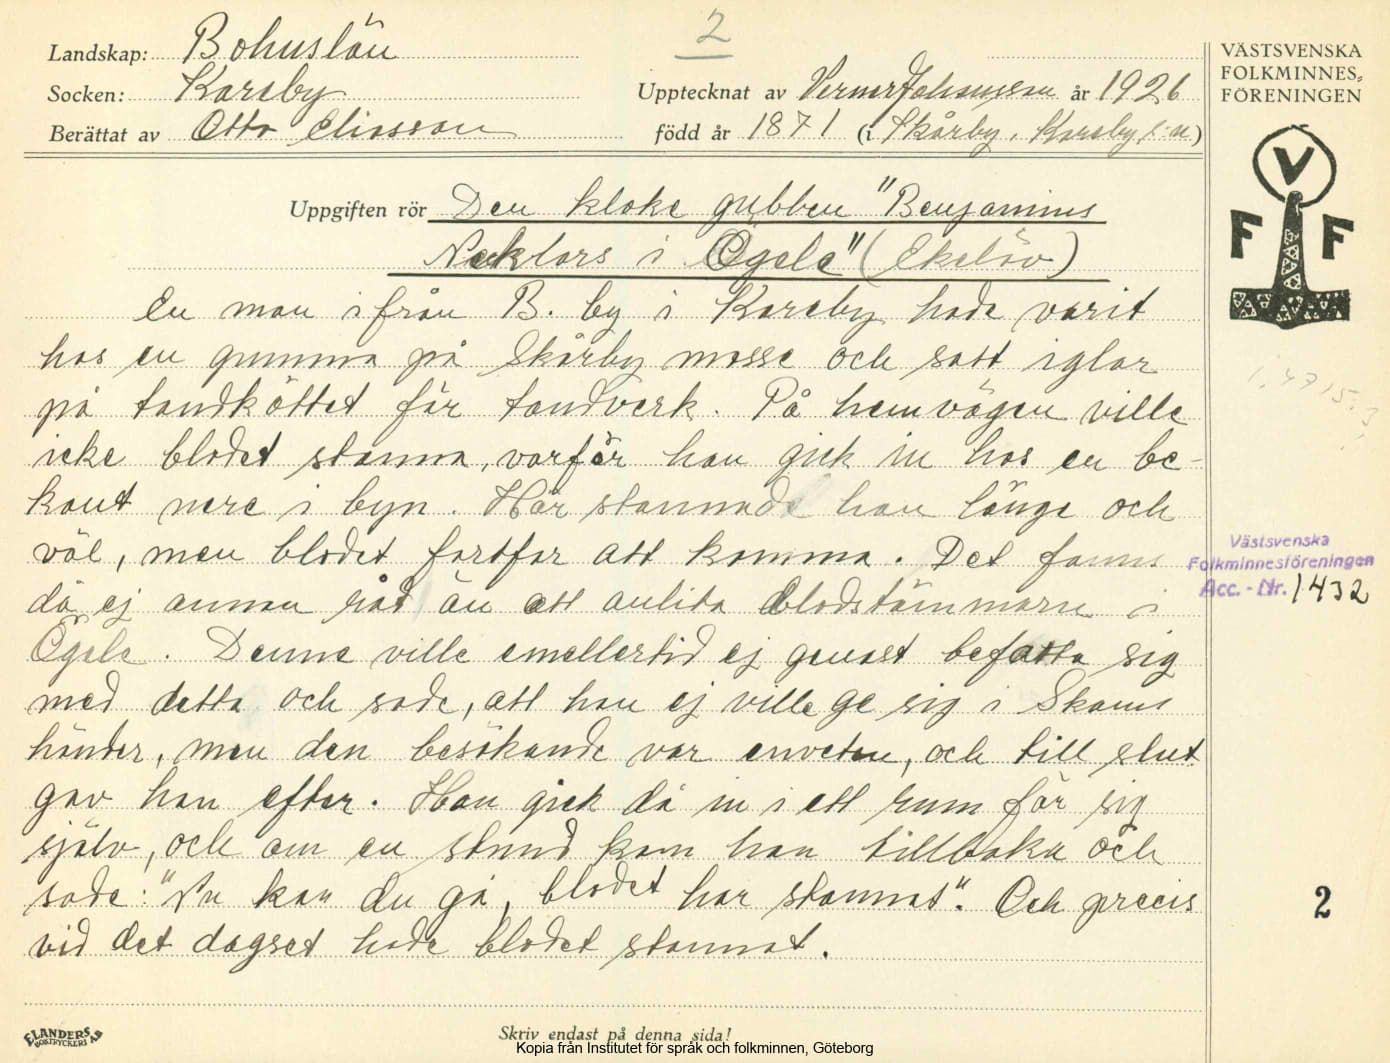 2
Landskap: Bohuslän
Socken: Kareby
Berättat av Otto Eliasson
Upptecknat av Verner Johansson år 1926
född år 1871 (i Skårby, Kareby s:n)
VÄSTSVENSKA
FOLKMINNES=
FÖRENINGEN
V
F F
Uppgiften rör Den kloke gubben "Benjamins
Necklars i Ögele" (Ekelöv)
En man ifrån B. by i Kareby hade varit
hos en gumma på Skårby mosse och satt iglar
på tandköttet för tandverk. På hemvägen ville
icke blodet stanna, varför han gick in hos en be-
kant nere i byn. Här stannade han länge och
väl, men blodet fortfor att komma. Det fanns
då ej annan råd än att anlita blodstämmaren i
Ögele. Denne ville emellertid ej genast befatta sig
med detta och sade, att han ej ville ge sig i Skams
händer, men den besökande var enveten, och till slut
gav han efter. Han gick då in i ett rum för sig
själv, och om en stund kom han tillbaka och
sade: "Nu kan du gå, blodet har stannat". Och precis
vid det dagset hade blodet stannat.
Västsvenska
Folkminnesföreningen
Acc.-Nr. 1432
2
ELANDERS
BOKTRYCKERI AB
Skriv endast på denna sida!
Kopia från Institutet för språk och folkminnen, Göteborg